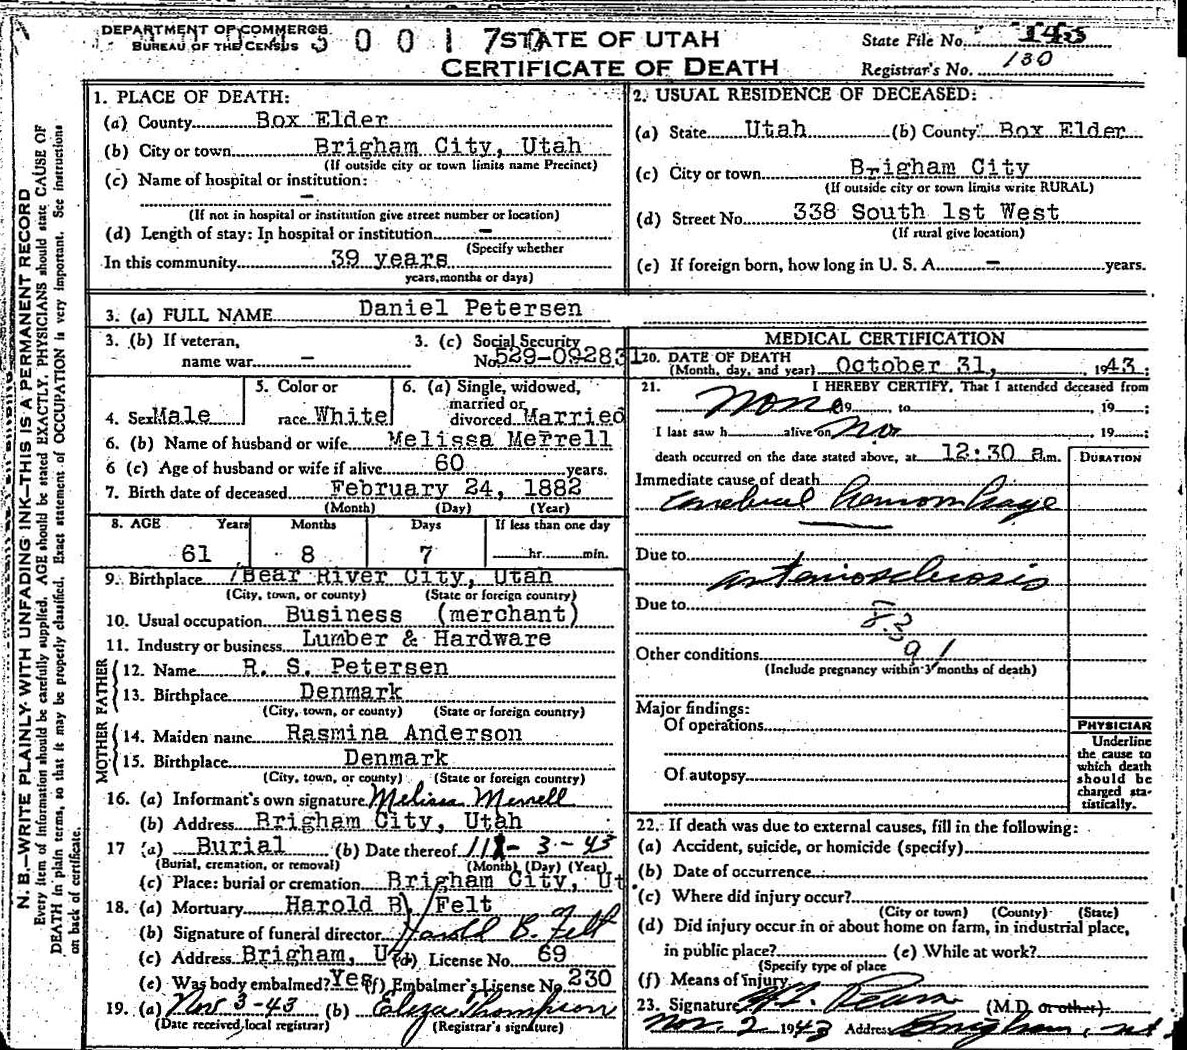 DEPARTMENT OF COMMERCE
BUREAU OF THE CENSUS
3 0 0 1 7
STATE OF UTAH
CERTIFICATE OF DEATH
State File No. 143
Registrar's No. 130
N. B.—WRITE PLAINLY WITH UNFADING INK—THIS IS A PERMANENT RECORD
Every item of information should be carefully supplied. AGE should be stated EXACTLY. PHYSICIANS should state CAUSE OF
DEATH in plain terms, so that it may be properly classified. Exact statement of OCCUPATION is very important. See instructions
on back of certificate.
1. PLACE OF DEATH:
(a) County Box Elder
(b) City or town Brigham City, Utah
(If outside city or town limits name Precinct)
(c) Name of hospital or institution:
—
(If not in hospital or institution give street number or location)
(d) Length of stay: In hospital or institution —
(Specify whether
In this community 39 years
years, months or days)
2. USUAL RESIDENCE OF DECEASED:
(a) State Utah (b) County Box Elder
(c) City or town Brigham City
(If outside city or town limits write RURAL)
(d) Street No. 338 South 1st West
(If rural give location)
(e) If foreign born, how long in U. S. A. — years.
3. (a) FULL NAME Daniel Petersen
3. (b) If veteran,
name war —
3. (c) Social Security
No. 529-092831
4. Sex Male
5. Color or
race White
6. (a) Single, widowed,
married or
divorced Married
6. (b) Name of husband or wife Melissa Merrell
6 (c) Age of husband or wife if alive 60 years.
7. Birth date of deceased February 24, 1882
(Month) (Day) (Year)
8. AGE Years Months Days If less than one day
61 8 7 hr. min.
9. Birthplace Bear River City, Utah
(City, town, or county) (State or foreign country)
10. Usual occupation Business (merchant)
11. Industry or business Lumber & Hardware
FATHER
12. Name R. S. Petersen
13. Birthplace Denmark
(City, town, or county) (State or foreign country)
MOTHER
14. Maiden name Rasmina Anderson
15. Birthplace Denmark
(City, town, or county) (State or foreign country)
16. (a) Informant's own signature Melissa Merrell
(b) Address Brigham City, Utah
17 (a) Burial (b) Date thereof 11- 3 - 43
(Burial, cremation, or removal) (Month) (Day) (Year)
(c) Place: burial or cremation Brigham City, Ut
18. (a) Mortuary Harold B. Felt
(b) Signature of funeral director Harold B. Felt
(c) Address Brigham, Ut. (d) License No. 69
(e) Was body embalmed? Yes (f) Embalmer's License No. 230
19. (a) Nov 3-43 (b) Eliza Thompson
(Date received local registrar) (Registrar's signature)
MEDICAL CERTIFICATION
20. DATE OF DEATH
(Month, day, and year) October 31, 1943;
21. I HEREBY CERTIFY, That I attended deceased from
None 19 , to , 19 ;
I last saw h alive on No , 19 ;
death occurred on the date stated above, at 12:30 a.m.
DURATION
Immediate cause of death
Cerebral hemorrhage
Due to
arteriosclerosis
Due to
Other conditions
(Include pregnancy within 3 months of death)
Major findings:
Of operations
Of autopsy
PHYSICIAN
Underline
the cause to
which death
should be
charged sta-
tistically.
22. If death was due to external causes, fill in the following:
(a) Accident, suicide, or homicide (specify)
(b) Date of occurrence
(c) Where did injury occur?
(City or town) (County) (State)
(d) Did injury occur in or about home on farm, in industrial place,
in public place? (e) While at work?
(Specify type of place
(f) Means of injury
23. Signature (M.D. or other)
Nov. 2 1943 Address Brigham, Ut